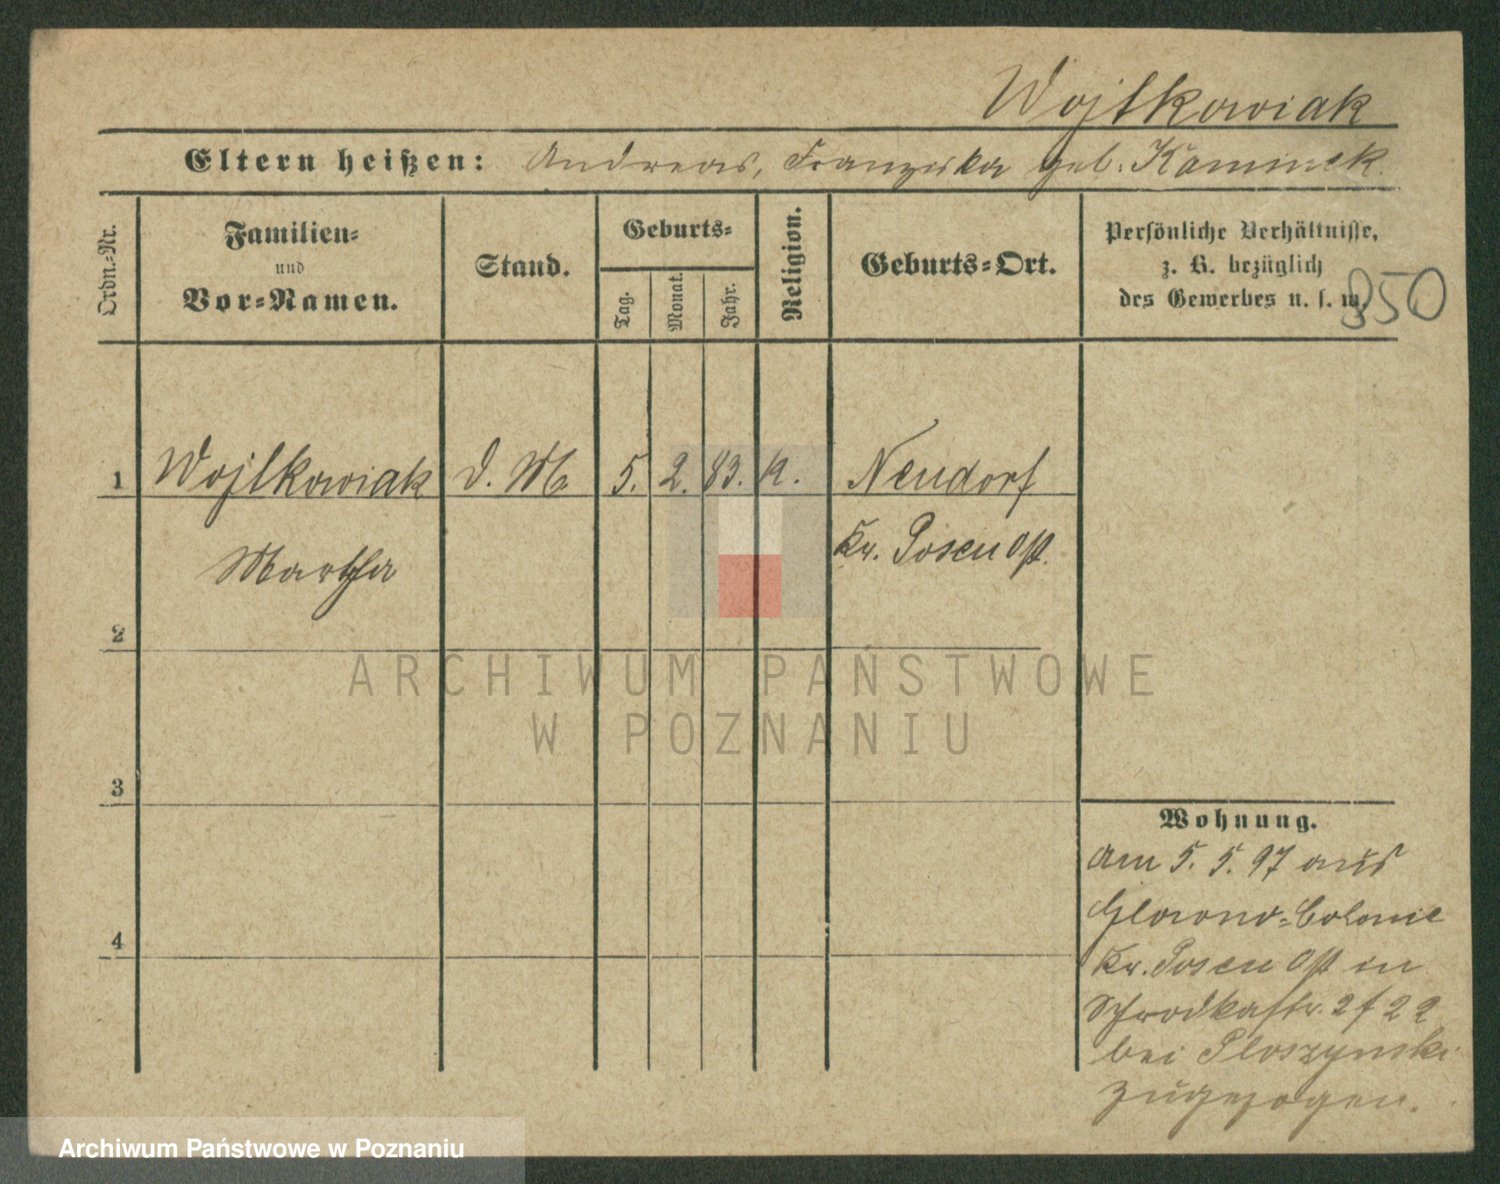 Wojtkowiak
Eltern heißen: Andreas, Franziska geb. Kaminek
Ordn.-Nr.
Familien-
und
Vor-Namen.
Stand.
Geburts-
Tag.
Monat.
Jahr.
Religion.
Geburts-Ort.
Persönliche Verhältnisse,
z. B. bezüglich
des Gewerbes u. s. w.
350
1 Wojtkowiak d. M. 5. 2. 83. k. Neudorf
Martha Kr. Posen Ost.
2
ARCHIWUM PAŃSTWOWE
W POZNANIU
3
Wohnung.
Am 5. 5. 97 aus
Glowno-Colonie
4
Kr. Posen Ost in
Schrodkastr. 22
bei Ploszynski
zugezogen.
Archiwum Państwowe w Poznaniu